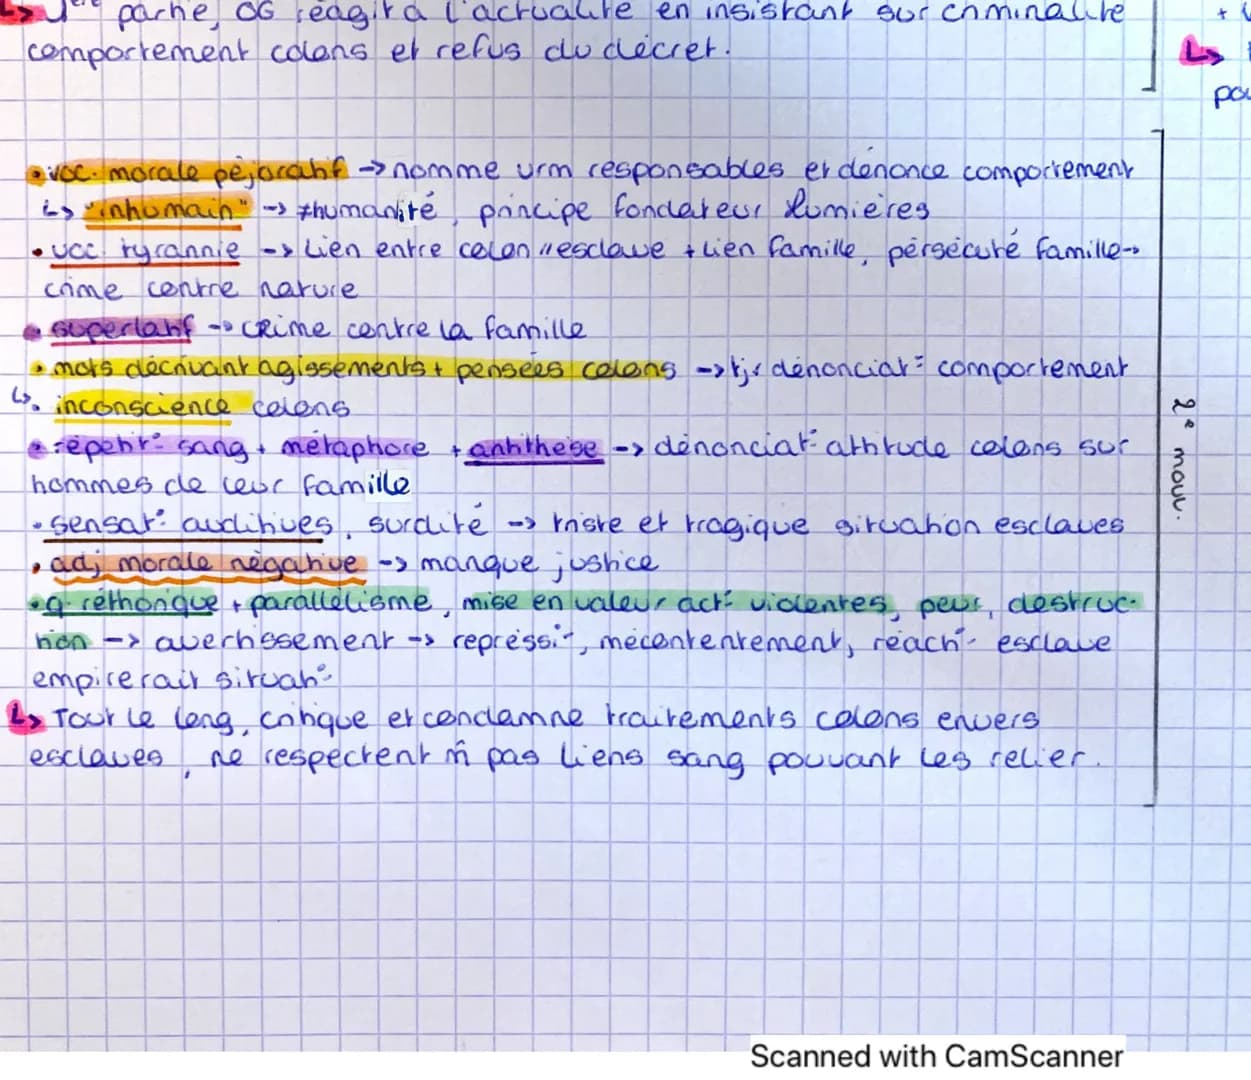 L> 1ère partie, OG réagit à l'actualité en insistant sur criminalité
comportement colons et refus du décret.
• voc. morale péjoratif -> nomme urm responsables et dénonce comportement
L> "inhumain" -> ≠humanité, principe fondateur Lumières
• voc. tyrannie -> Lien entre colon // esclave + lien famille, persécuté famille ->
crime contre nature
• superlatif -> crime contre la famille
• mots décrivant agissements + pensées colons -> tjs dénonciat° comportement
L>. inconscience colons
• répétit° sang + métaphore + antithèse -> dénonciat° attitude colons sur
hommes de leur famille
• sensat° auditives, surdité -> triste et tragique situation esclaves
• adj morale négative -> manque justice
• q. réthorique + parallélisme, mise en valeur act° violentes, peur, destruc-
tion -> avertissement -> répressi°, mécontentement, réacti° esclave
empirerait situati°
L> Tout le long, critique et condamne traitements colons envers
esclaves, ne respectent m̂ pas liens sang pouvant les relier.
2e mouv.
+
L>
pou
Scanned with CamScanner